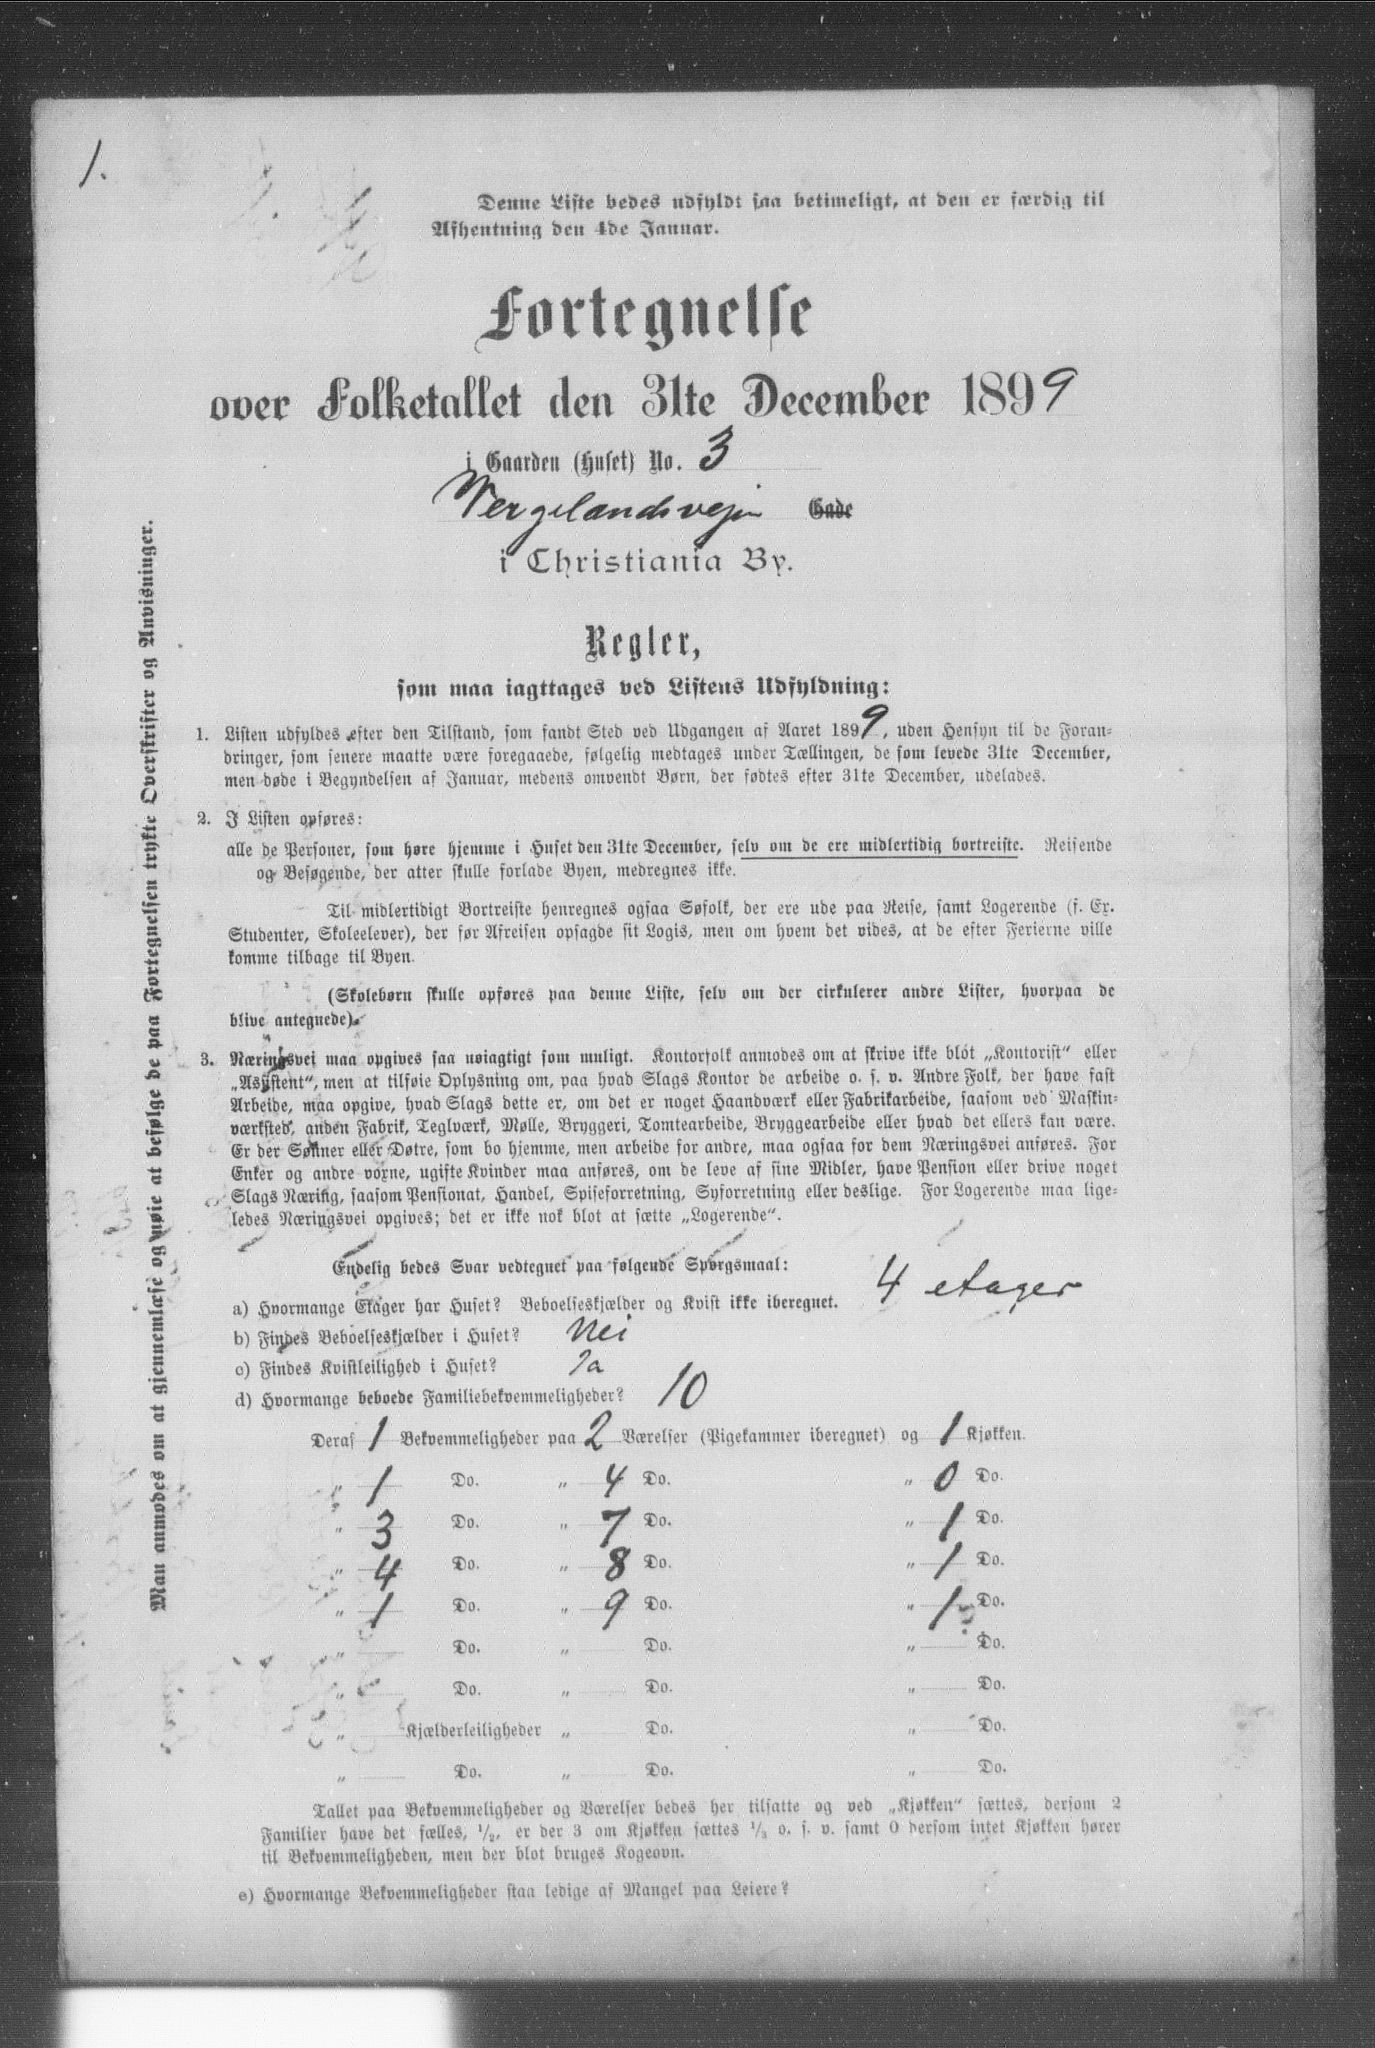 1.
Denne Liste bedes udfyldt saa betimeligt, at den er færdig til
Afhentning den 4de Januar.
Fortegnelse
over Folketallet den 31te December 1899
i Gaarden (Huset) No. 3
Wergelandsvejen Gade
i Christiania By.
Regler,
som maa iagttages ved Listens Udfyldning:
1. Listen udfyldes efter den Tilstand, som fandt Sted ved Udgangen af Aaret 1899, uden Hensyn til de Foran-
dringer, som senere maatte være foregaaede, følgelig medtages under Tællingen, de som levede 31te December,
men døde i Begyndelsen af Januar, medens omvendt Børn, der fødtes efter 31te December, udelades.
2. I Listen opføres:
alle de Personer, som høre hjemme i Huset den 31te December, selv om de ere midlertidig bortreiste. Reisende
og Besøgende, der atter skulle forlade Byen, medregnes ikke.
Til midlertidigt Bortreiste henregnes ogsaa Søfolk, der ere ude paa Reise, samt Logerende (f. Ex.
Studenter, Skoleelever), der før Afreisen opsagde sit Logis, men om hvem det vides, at de efter Ferierne ville
komme tilbage til Byen.
(Skolebørn skulle opføres paa denne Liste, selv om der cirkulerer andre Lister, hvorpaa de
blive antegnede).
3. Næringsvei maa opgives saa nøiagtigt som muligt. Kontorfolk anmodes om at skrive ikke blot „Kontorist“ eller
„Assistent“, men at tilføie Oplysning om, paa hvad Slags Kontor de arbeide o. s. v. Andre Folk, der have fast
Arbeide, maa opgive, hvad Slags dette er, om det er noget Haandværk eller Fabrikarbeide, saasom ved Maskin-
værksted, anden Fabrik, Teglværk, Mølle, Bryggeri, Tomtearbeide, Bryggearbeide eller hvad det ellers kan være.
Er der Sønner eller Døtre, som bo hjemme, men arbeide for andre, maa ogsaa for dem Næringsvei anføres. For
Enker og andre voxne, ugifte Kvinder maa anføres, om de leve af sine Midler, have Pension eller drive noget
Slags Næring, saasom Pensionat, Handel, Spiseforretning, Syforretning eller deslige. For Logerende maa lige-
ledes Næringsvei opgives; det er ikke nok blot at sætte „Logerende“.
Endelig bedes Svar vedtegnet paa følgende Spørgsmaal:
a) Hvormange Etager har Huset? Beboelseskjælder og Kvist ikke iberegnet. 4 etager
b) Findes Beboelseskjælder i Huset? Nei
c) Findes Kvistleilighed i Huset? Ja
d) Hvormange beboede Familiebekvemmeligheder? 10
Deraf 1 Bekvemmeligheder paa 2 Værelser (Pigekammer iberegnet) og 1 Kjøkken.
„ 1 Do. „ 4 Do. „ 0 Do.
„ 3 Do. „ 7 Do. „ 1 Do.
„ 4 Do. „ 8 Do. „ 1 Do.
„ 1 Do. „ 9 Do. „ 1 Do.
„ Do. „ Do. „ Do.
„ Do. „ Do. „ Do.
„ Kjælderleiligheder „ Do. „ Do.
„ Do. „ Do. „ Do.
Tallet paa Bekvemmeligheder og Værelser bedes her tilsatte og ved „Kjøkken“ sættes, dersom 2
Familier have det fælles, 1/2, er der 3 om Kjøkken sættes 1/3 o. s. v. samt 0 dersom intet Kjøkken hører
til Bekvemmeligheden, men der blot bruges Kogeovn.
e) Hvormange Bekvemmeligheder staa ledige af Mangel paa Leiere?
Man anmodes om at gjennemlæse og nøie at befølge de paa Fortegnelsen trykte Overskrifter og Anvisninger.